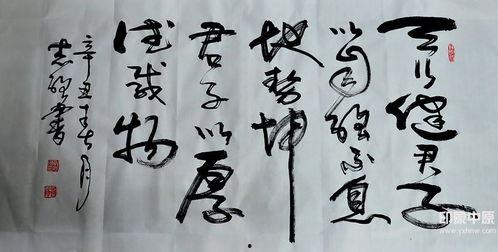 天行健君子
以自强不息
地势坤
君子以厚
德载物
辛丑春月
志强书
印象中原
www.yxhnw.com